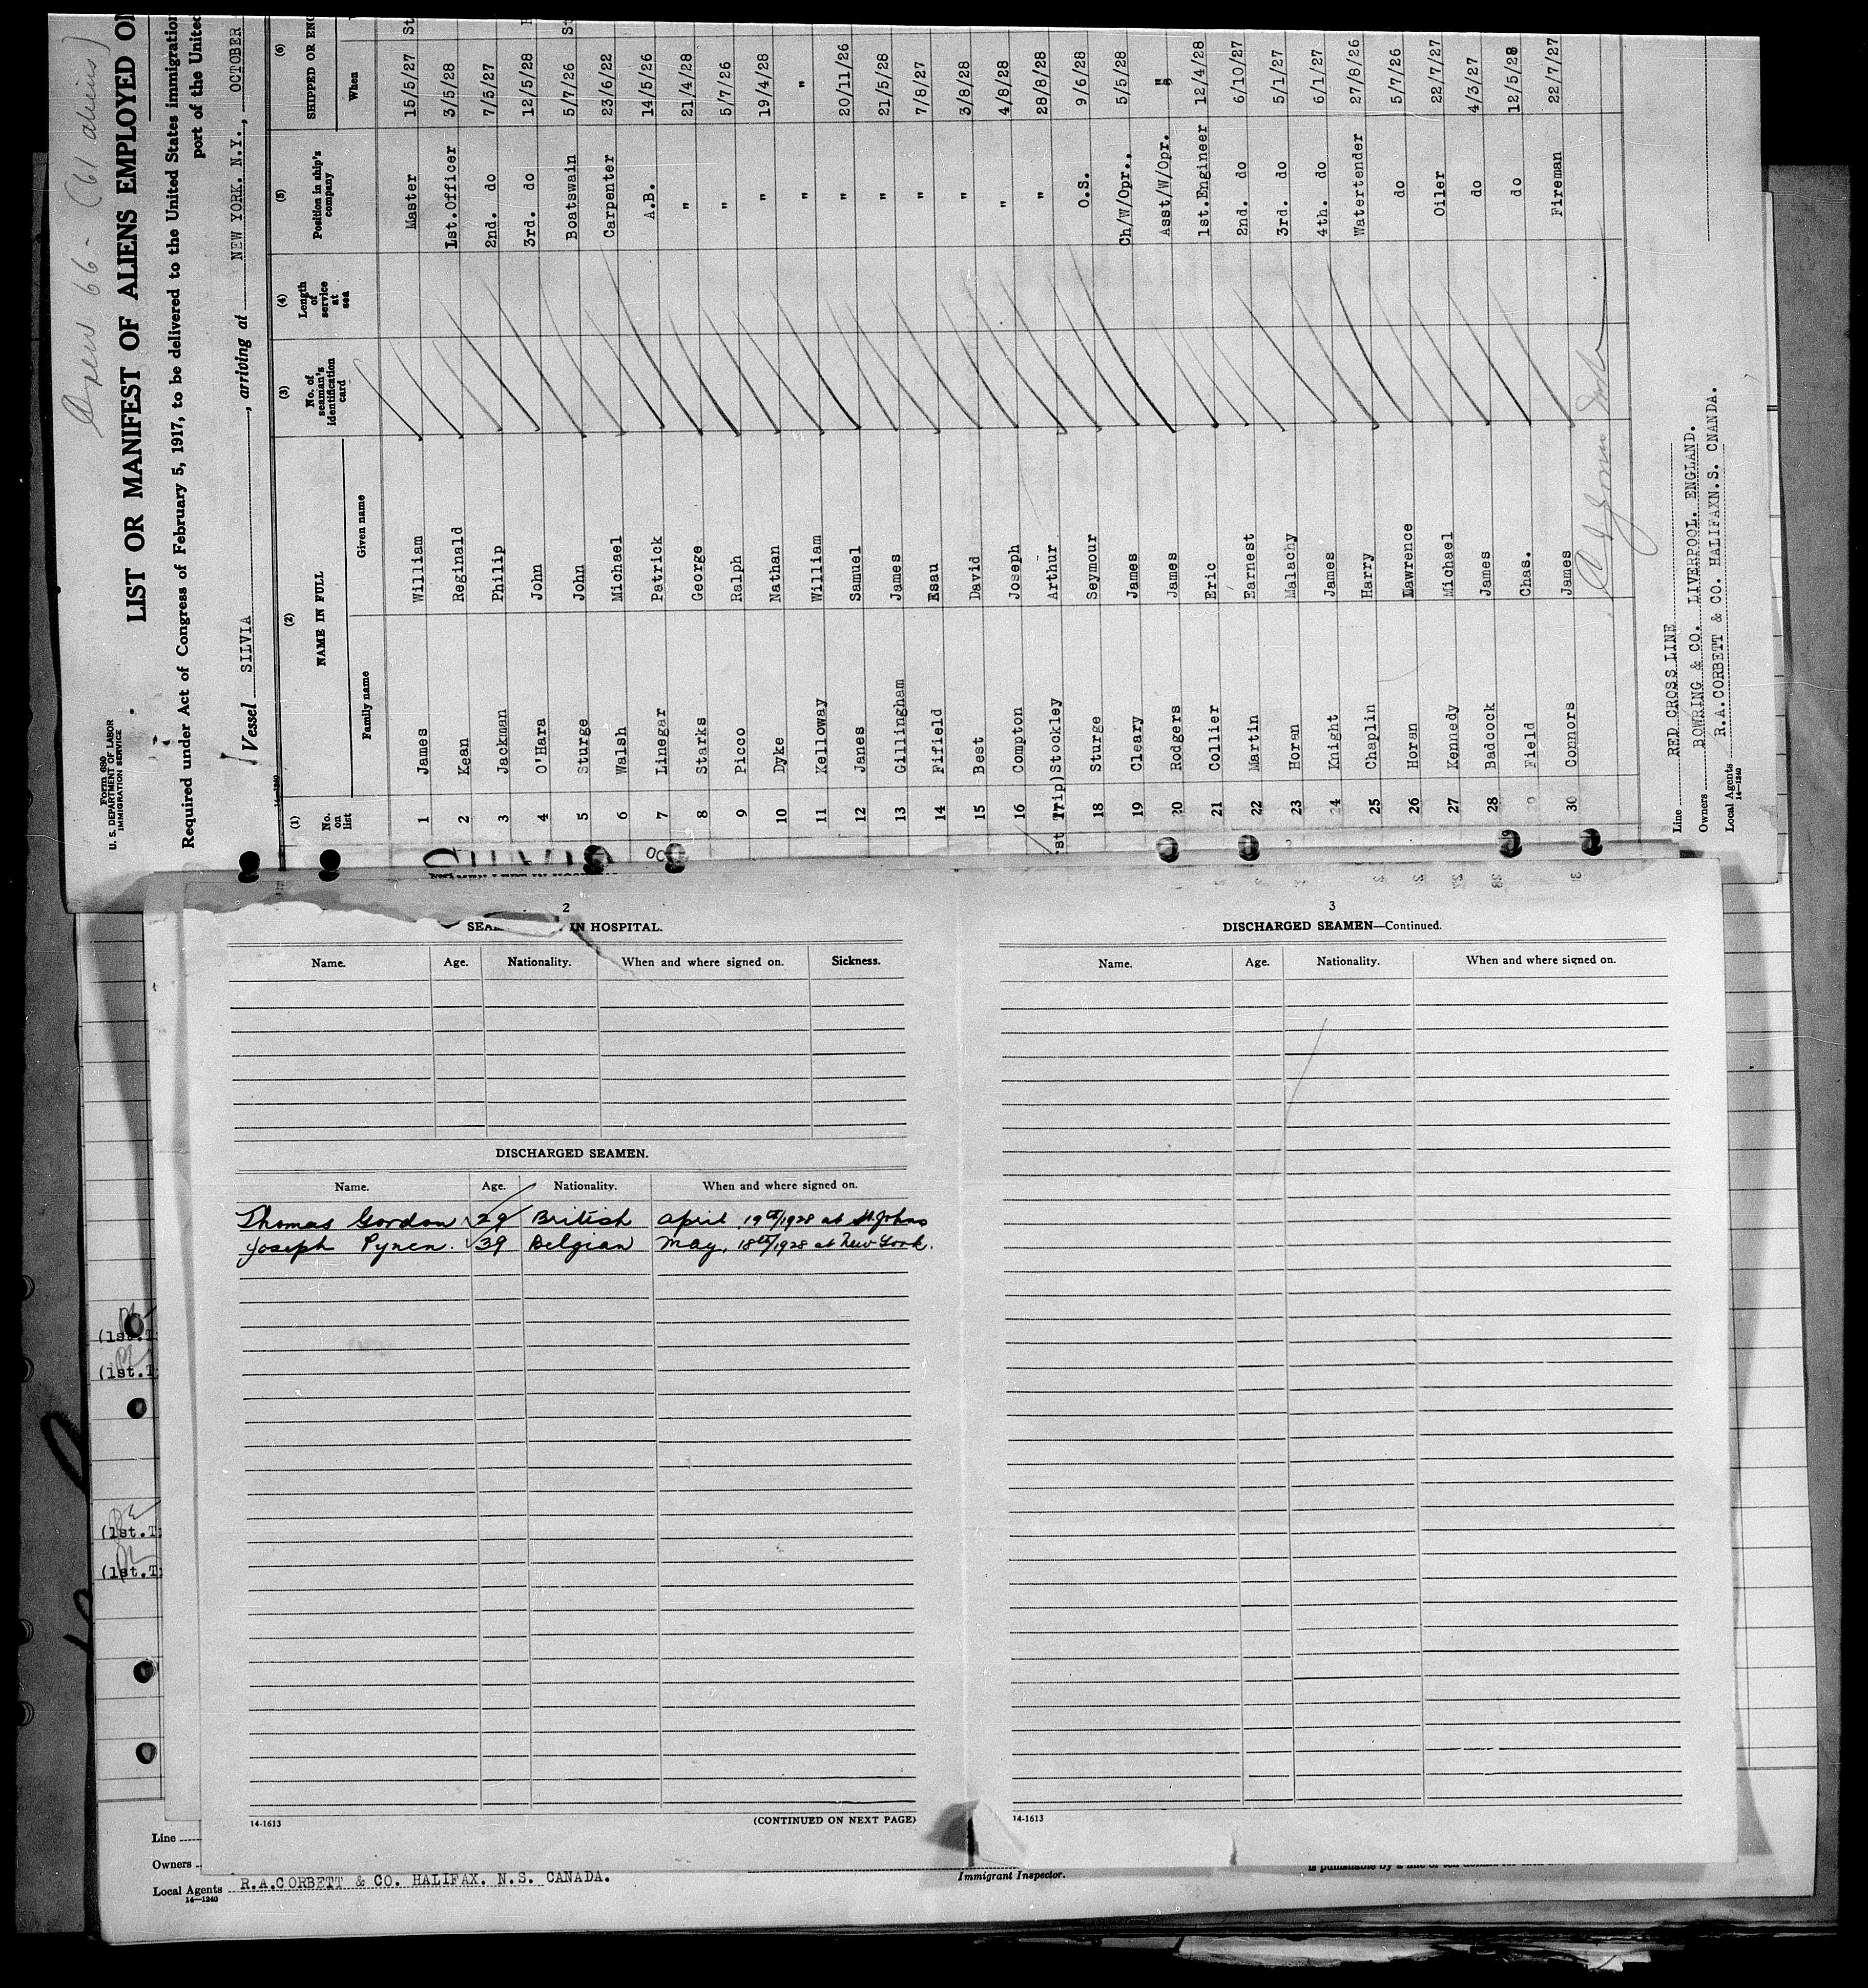 Crew 66 - (61 aliens)
Form 680
U. S. DEPARTMENT OF LABOR
IMMIGRATION SERVICE
LIST OR MANIFEST OF ALIENS EMPLOYED O
Required under Act of Congress of February 5, 1917, to be delivered to the United States immigration
port of the United
Vessel SILVIA, arriving at NEW YORK. N.Y., OCTOBER
(1) (2) (3) (4) (5) (6)
No. on list NAME IN FULL No. of seaman's identification card Length of service at sea Position in ship's company SHIPPED OR EN
Family name Given name When
1 James William Master 15/5/27 St
2 Kean Reginald 1st.Officer 3/5/28
3 Jackman Philip 2nd. do 7/5/27
4 O'Hara John 3rd. do 12/5/28
5 Sturge John Boatswain 5/7/26 St
6 Walsh Michael Carpenter 23/6/22
7 Linegar Patrick A.B. 14/5/26
8 Starks George " 21/4/28
9 Picco Ralph " 5/7/26
10 Dyke Nathan " 19/4/28
11 Kelloway William " "
12 Janes Samuel " 20/11/26
13 Gillingham James " 21/5/28
14 Fifield Esau " 7/8/27
15 Best David " 3/8/28
16 Compton Joseph " 4/8/28
st Trip) Stockley Arthur " 28/8/28
18 Sturge Seymour O.S. 9/6/28
19 Cleary James Ch/W/Opr., 5/5/28
20 Rodgers James Asst/W/Opr. "
21 Collier Eric 1st.Engineer 12/4/28
22 Martin Earnest 2nd. do 6/10/27
23 Horan Malachy 3rd. do 5/1/27
24 Knight James 4th. do 6/1/27
25 Chaplin Harry Watertender 27/8/26
26 Horan Lawrence do 5/7/26
27 Kennedy Michael Oiler 22/7/27
28 Badcock James do 4/3/27
29 Field Chas. do 12/5/28
30 Connors James Fireman 22/7/27
Line RED CROSS LINE
Owners BOWRING & CO. LIVERPOOL. ENGLAND.
Local Agents R.A.CORBETT & CO. HALIFAXN.S. CNANDA.
14—1240
2
SEA IN HOSPITAL.
Name. Age. Nationality. When and where signed on. Sickness.
DISCHARGED SEAMEN.
Name. Age. Nationality. When and where signed on.
Thomas Gordon 29 British April 19th/1928 at St. Johns
Joseph Pynen. 39 Belgian May, 18th/1928 at New York.
14-1613
(CONTINUED ON NEXT PAGE)
3
DISCHARGED SEAMEN—Continued.
Name. Age. Nationality. When and where signed on.
14-1613
(1st.T
(1st.T
(1st.T
(1st.T
Line
Owners
Local Agents R.A.CORBETT & CO. HALIFAX. N.S. CANADA.
14—1240
Immigrant Inspector.